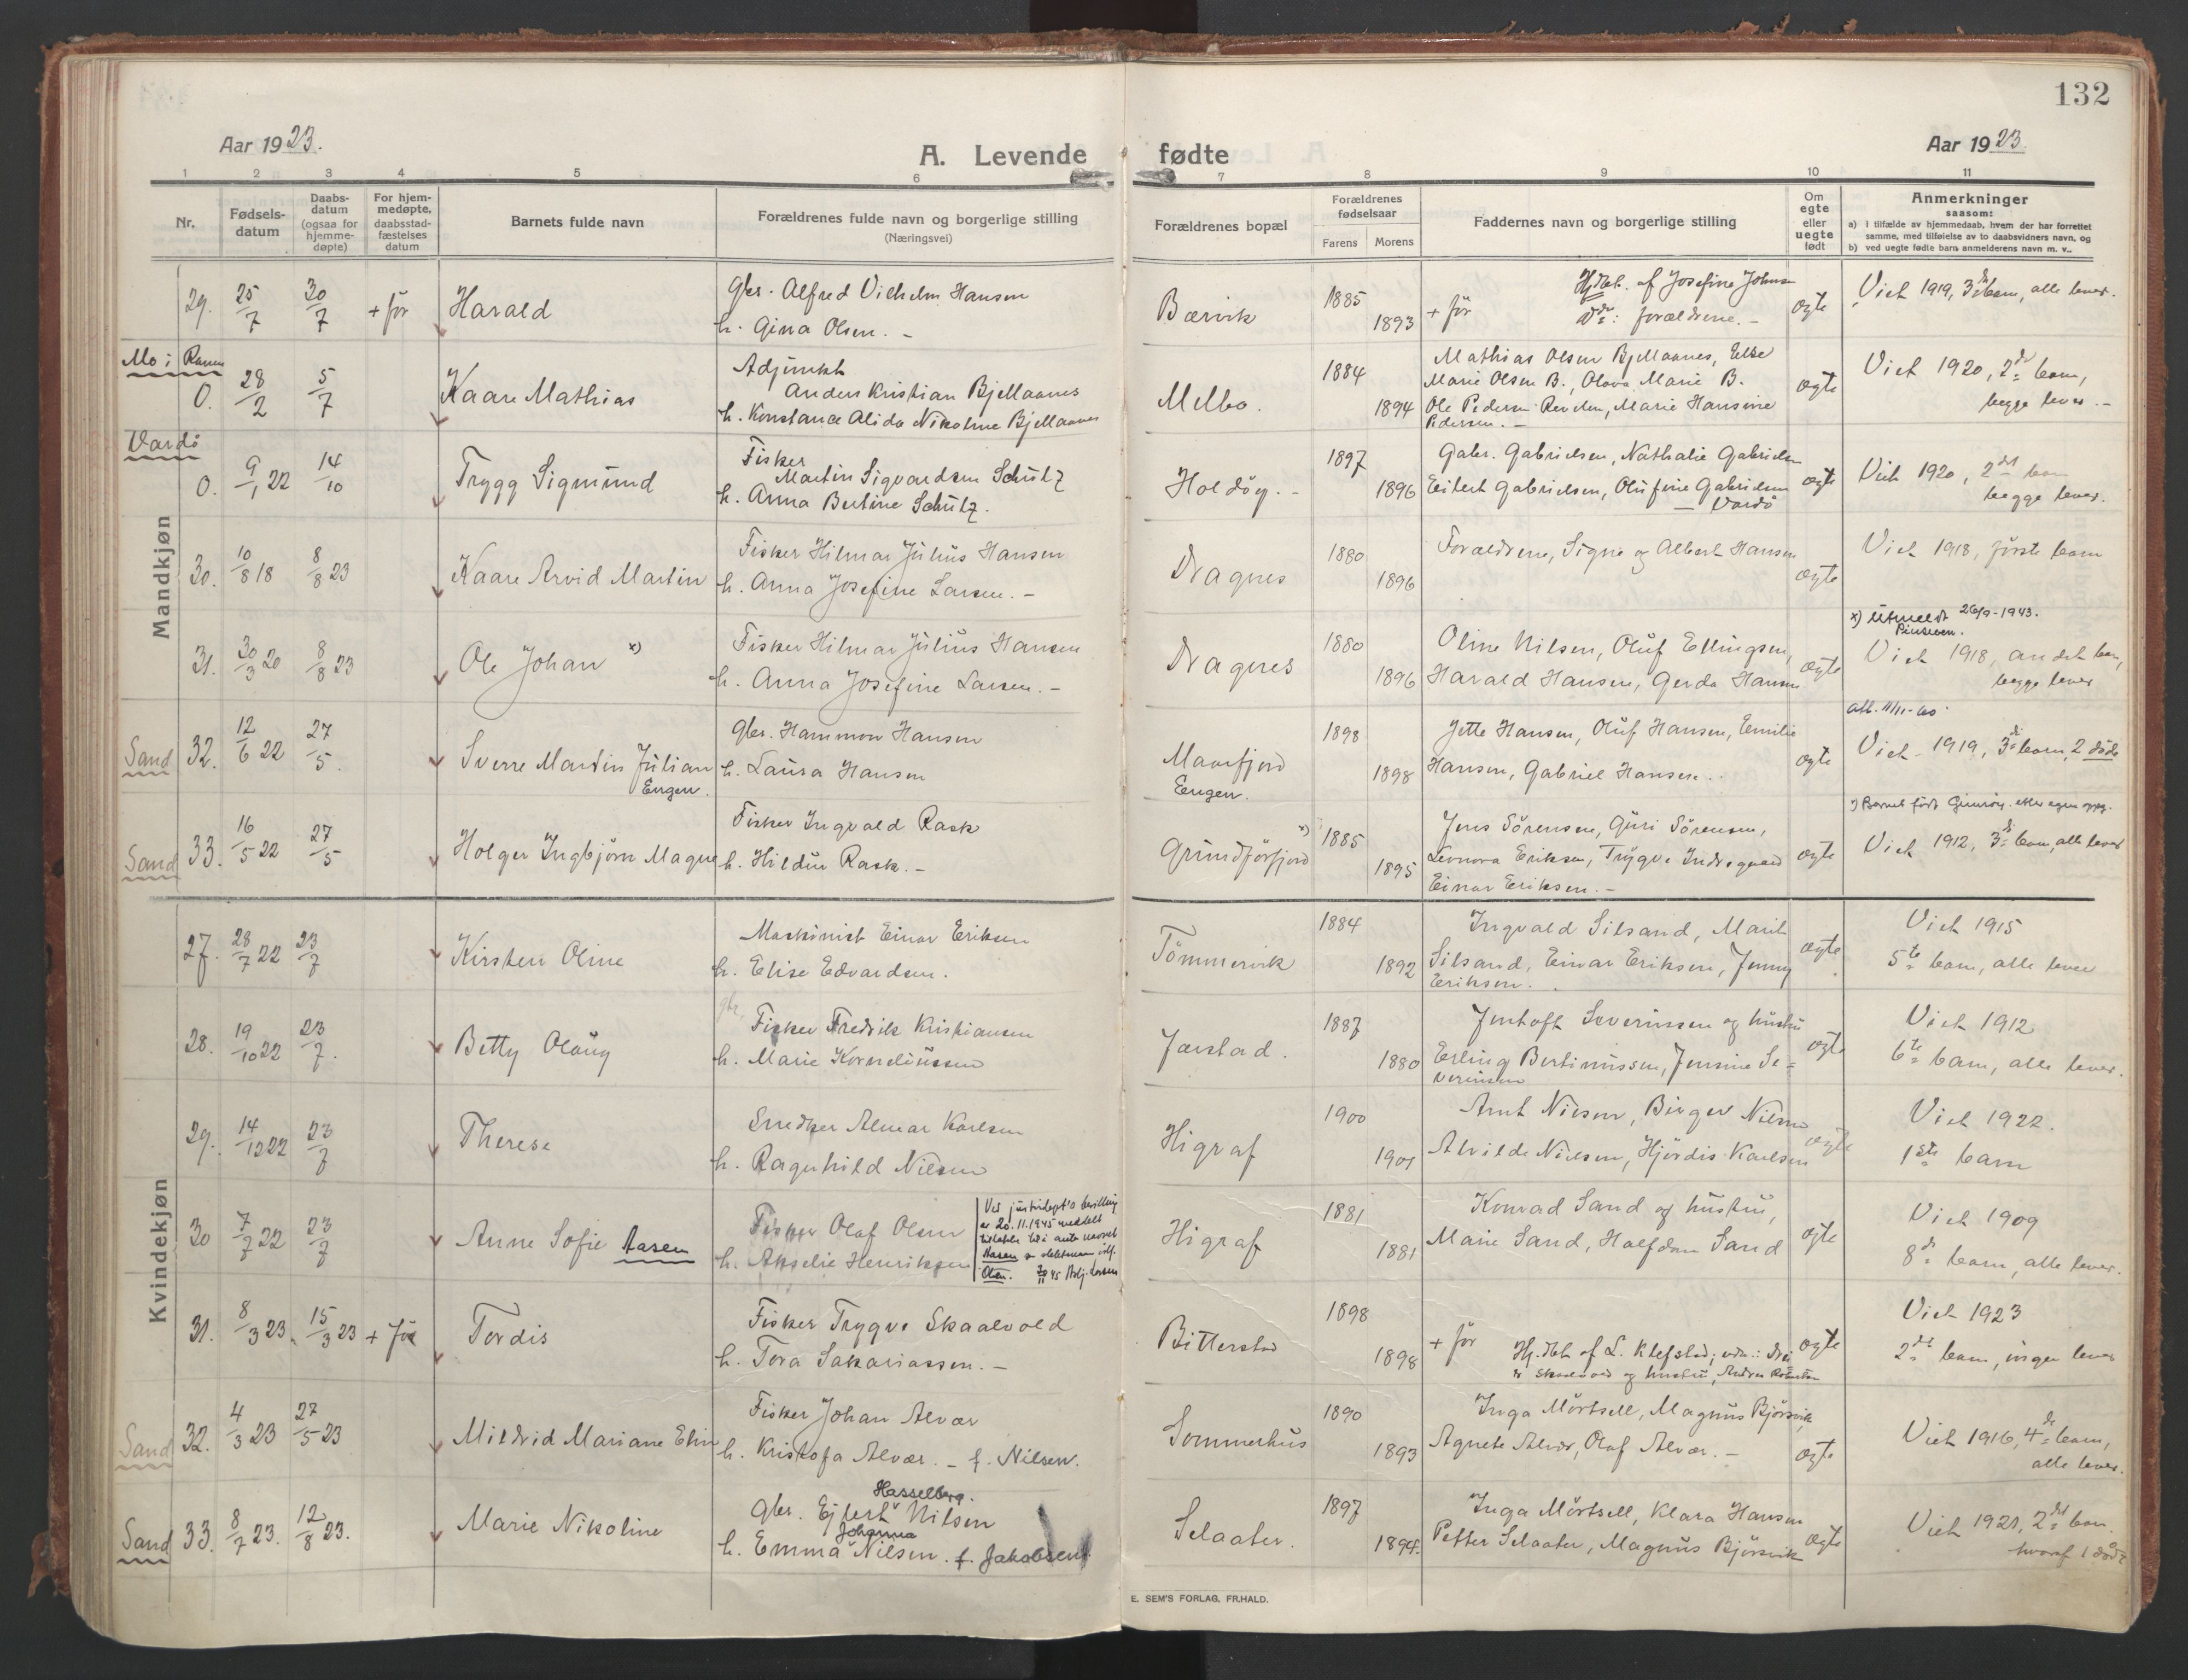 132
Aar 1923.
A. Levende fødte
Aar 1923
1 2 3 4 5 6 7 8 9 10 11
Nr.
Fødsels-
datum
Daabs-
datum
(ogsaa for
hjemme-
døpte)
For hjem-
medøpte,
daabsstad-
fæstelses
datum
Barnets fulde navn
Forældrenes fulde navn og borgerlige stilling
(Næringsvei)
Forældrenes bopæl
Forældrenes
fødselsaar
Farens Morens
Faddernes navn og borgerlige stilling
Om
egte
eller
uegte
født
Anmerkninger
saasom:
a) i tilfælde av hjemmedaab, hvem der har forrettet
samme, med tilføielse av to daabsvidners navn, og
b) ved uegte fødte barn anmelderens navn m. v..
Mandkjøn
29. 25/7 30/7 + før Harald
Gbr. Alfred Vilhelm Hansen
h. Gina Olsen. -
Børvik 1885 1893
+ før Hj.døbt. af Josefine Johnsen
: forældrene. -
ægte
Viet 1919, 3de barn, alle lever.
Mo i Ranen
0. 28/2 5/7 Kaare Mathias
Adjunkt
Anders Kristian Bjellaanes
h. Konstance Alida Nikoline Bjellaanes
Melbo. 1884 1894
Mathias Olsen Bjellaanes, Elise
Marie Olsen B., Olava Marie B.
Ole Pedersen, Marie Hansine
Pedersen. -
ægte
Viet 1920, 2det barn,
begge lever. -
Vardö
0. 9/1 22 14/10 Trygg Sigmund
Fisker
Martin Sigvardsen Schütz
h. Anna Bertine Schütz.
Holdöy. - 1897 1896
Gabr. Gabrielsen, Nathalie Gabrielsen
Eilert Gabrielsen, Olufine Gabrielsen
- Vardö
ægte
Viet 1920, 2det barn
begge lever.
30. 10/8 18 8/8 23 Kaare Arvid Martin
Fisker Hilmar Julius Hansen
h. Anna Josefine Larsen. -
Dragnes 1880 1896
Forældrene, Signe og Albert Hansen
ægte
Viet 1918, første barn
31. 30/3 20 8/8 23 Ole Johan x)
Fisker Hilmar Julius Hansen
h. Anna Josefine Larsen. -
Dragnes 1880 1896
Oline Nilsen, Oluf Ellingsen,
Harald Hansen, Gerda Hansen
ægte
x) Utmeldt 26/9-1943.
Pinseven.
Viet 1918, andet barn,
begge lever
Sand 32. 12/6 22 27/5. Sverre Martin Julian
Engen.
Gbr. Hammon Hansen
h. Laura Hansen
Maurfjord
Engen. 1898 1898
Jette Hansen, Oluf Hansen, Emilie
Hansen, Gabriel Hansen.
ægte
att. 11/11-60
Viet 1919, 3die barn, 2 døde
Sand 33. 16/5 22 27/5 Holger Ingbjørn Magne
Fisker Ingvald Rask
h. Hildur Rask. -
Grundförfjord x) 1885 1895
Jens Sörensen, Guri Sörensen,
Leonora Eriksen, Trygve Indregaard
Einar Eriksen. -
ægte
x) Barnet född Gimsöy. etter egen oppg.
Viet 1912, 3die barn, alle lever
Kvindekjøn
27. 28/7 22 23/7 Kirsten Oline
Maskinist Einar Eriksen
h. Elise Edvardsen.
Tömmervik 1884 1892
Ingvald Silsand, Marit
Silsand, Einar Eriksen, Jenny
Eriksen.
ægte
Viet 1915
5te barn, alle lever
28. 19/10 22 23/7. Betty Olaug
gbr.
Fisker Fredrik Kristiansen
h. Marie Korneliussen
Jørstad. 1887 1880
Jentoft Severinsen og hustru
Erling Bertinussen, Jensine Se-
verinsen
ægte
Viet 1912
6te barn, alle lever.
29. 14/12 22 23/7 Therese
Snedker Almar Karlsen
h. Ragnhild Nilsen
Higraf 1900 1901
Arnt Nilsen, Birger Nilsen
Alvilde Nielsen, Hjördis Karlsen
ægte
Viet 1922.
1ste barn
30 7/7 22 23/7 Anne Sofie Aasen
Fisker Olaf Olsen
h. Akselie Henriksen
Ved justisdept's bevilling
av 20.11.1945 meddelt
tillatelse til å anta navnet
Aasen som slektsnavn istf.
Olsen. 30/11 45
Higraf 1881 1881
Konrad Sand og hustru,
Marie Sand, Halfdan Sand
ægte
Viet 1909
8de barn, alle lever.
31. 8/3 23. 15/3 23 + før Tordis
Fisker Trygve Skaalvold
h. Tora Sakariassen. -
Bitterstad 1898 1898
+ før Hj.døbt af L. Klefstad;
Skaalvold og hustru, Andrea
ægte
Viet 1923
2det barn, ingen lever
Sand 32. 4/3 23 27/5 23 Mildrid Mariane Elin
Fisker Johan Alvær
h. Kristofa Alvær. - f. Nilsen.
Sommerhus 1890 1893
Inga Mörtsell, Magnus Björsvik
Agnete Alvær, Olaf Alvær. -
ægte
Viet 1916, 4de barn,
alle lever.
Sand 33. 8/7 23. 12/8 23. Marie Nikoline
Hasselberg.
Gbr. Ejlert Nilsen
Johanna
h. Emma Nilsen. f. Jakobsen.
Selaater. 1897 1894.
Inga Mörtsell, Klara Hansen
Petter Selaater, Magnus Björsvik
ægte
Viet 1921, 2det barn.
hvoraf 1 död
E. SEM'S FORLAG, FR.HALD.